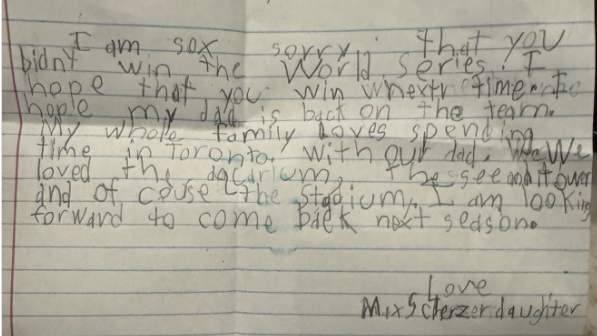 I am sox sorry that you
bidnt win the World series. I
hope that you win next time I
hople my dad is back on the team.
My whole family loves spending
time in Toronto. with our dad. We
loved the aqcarium, the see and it ower
and of couse the stadium. I am looking
forward to come back next season.
Love
Max Scherzer daughter